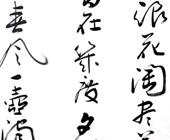 浪花淘尽英
旧在幾度夕
春风一壶浊